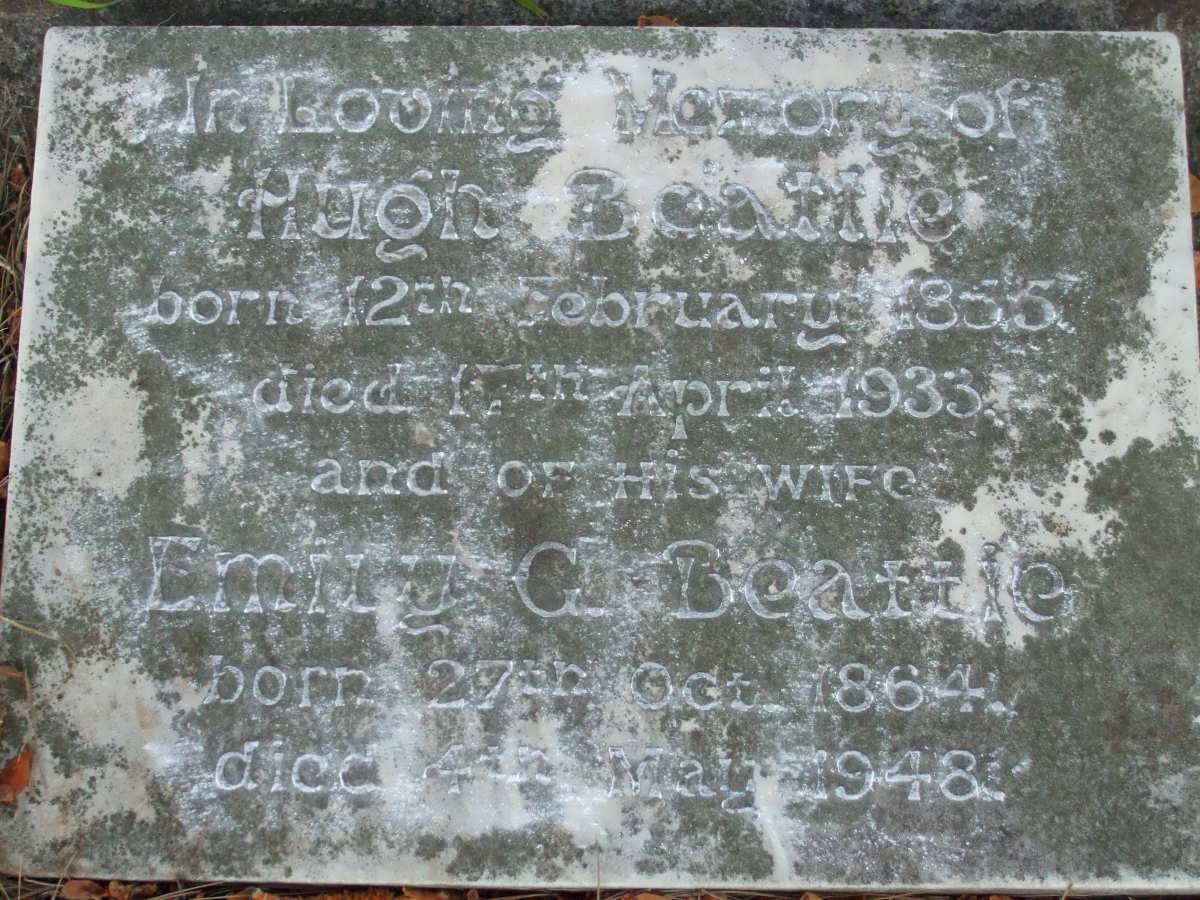 In Loving Memory of
Hugh Beattie
born 12th February 1855.
died 17th April 1933.
and of His wife
Emily G. Beattie
born 27th Oct. 1864.
died 4th May 1948.